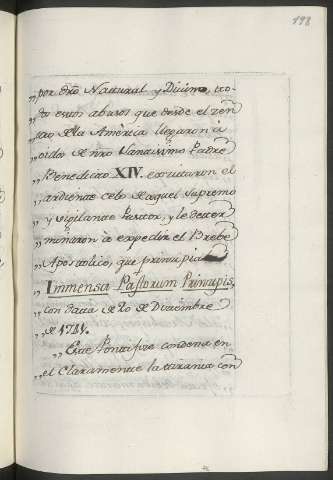 198
„por dro Natural y Divino, to-
„dos estos abusos que desde el cen
„tro de la América llegaron à
„oidos de nro Santissimo Padre
„Benedicto XIV. excitaron el
„ardiente celo de aquel Supremo
„y vigilante Pastor, y le deter
„minaron à expedir el Brebe
„Apostolico, que principia
„Immensa Pastorum Principis,
„con data de 20 de Diciembre
„de 1741.
„Este Pontifice condena en
„el claramente la tirania con